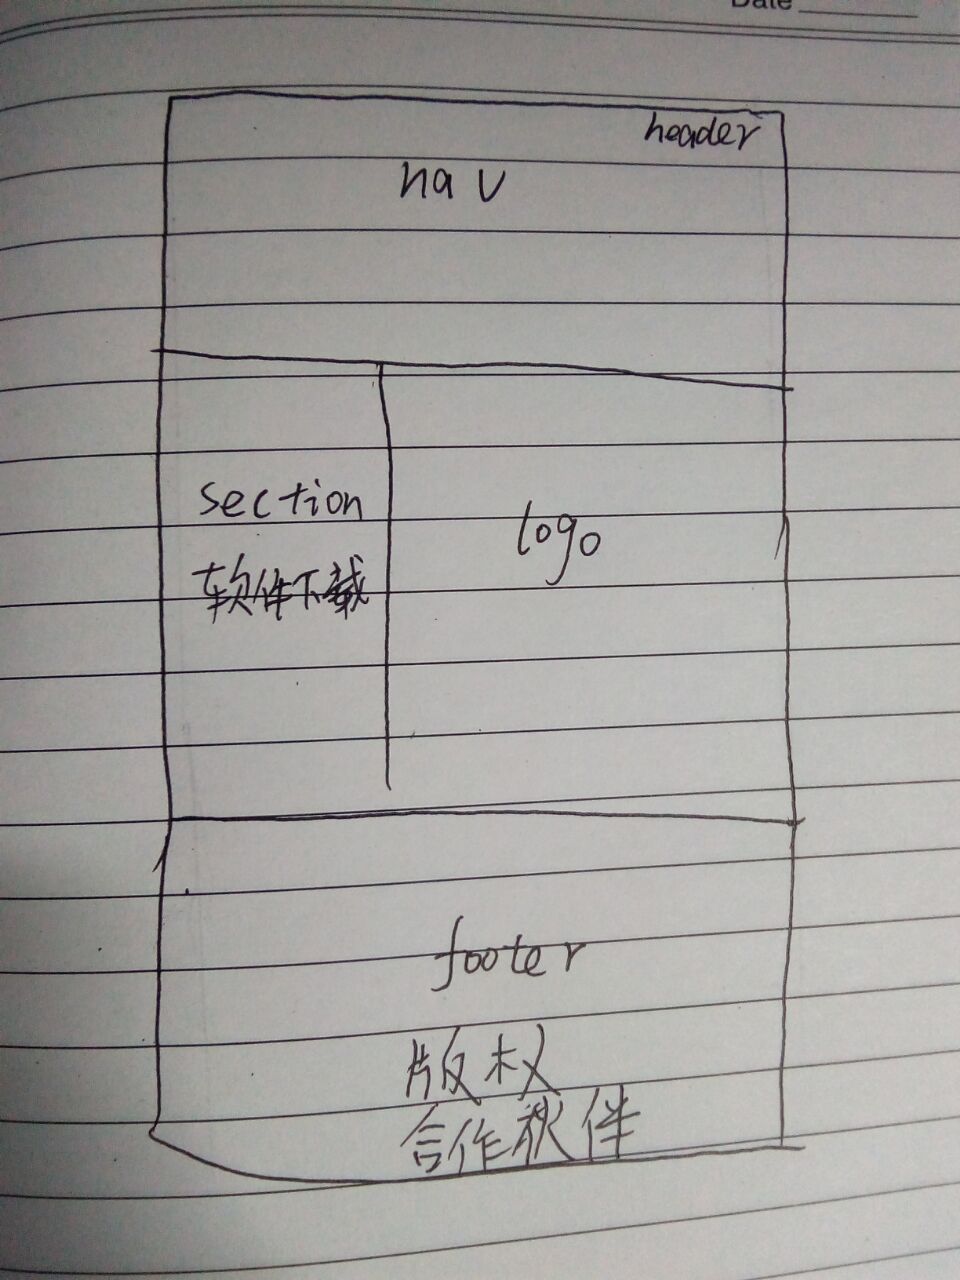 Date
header
nav
section
软件下载
logo
footer
版权
合作伙伴